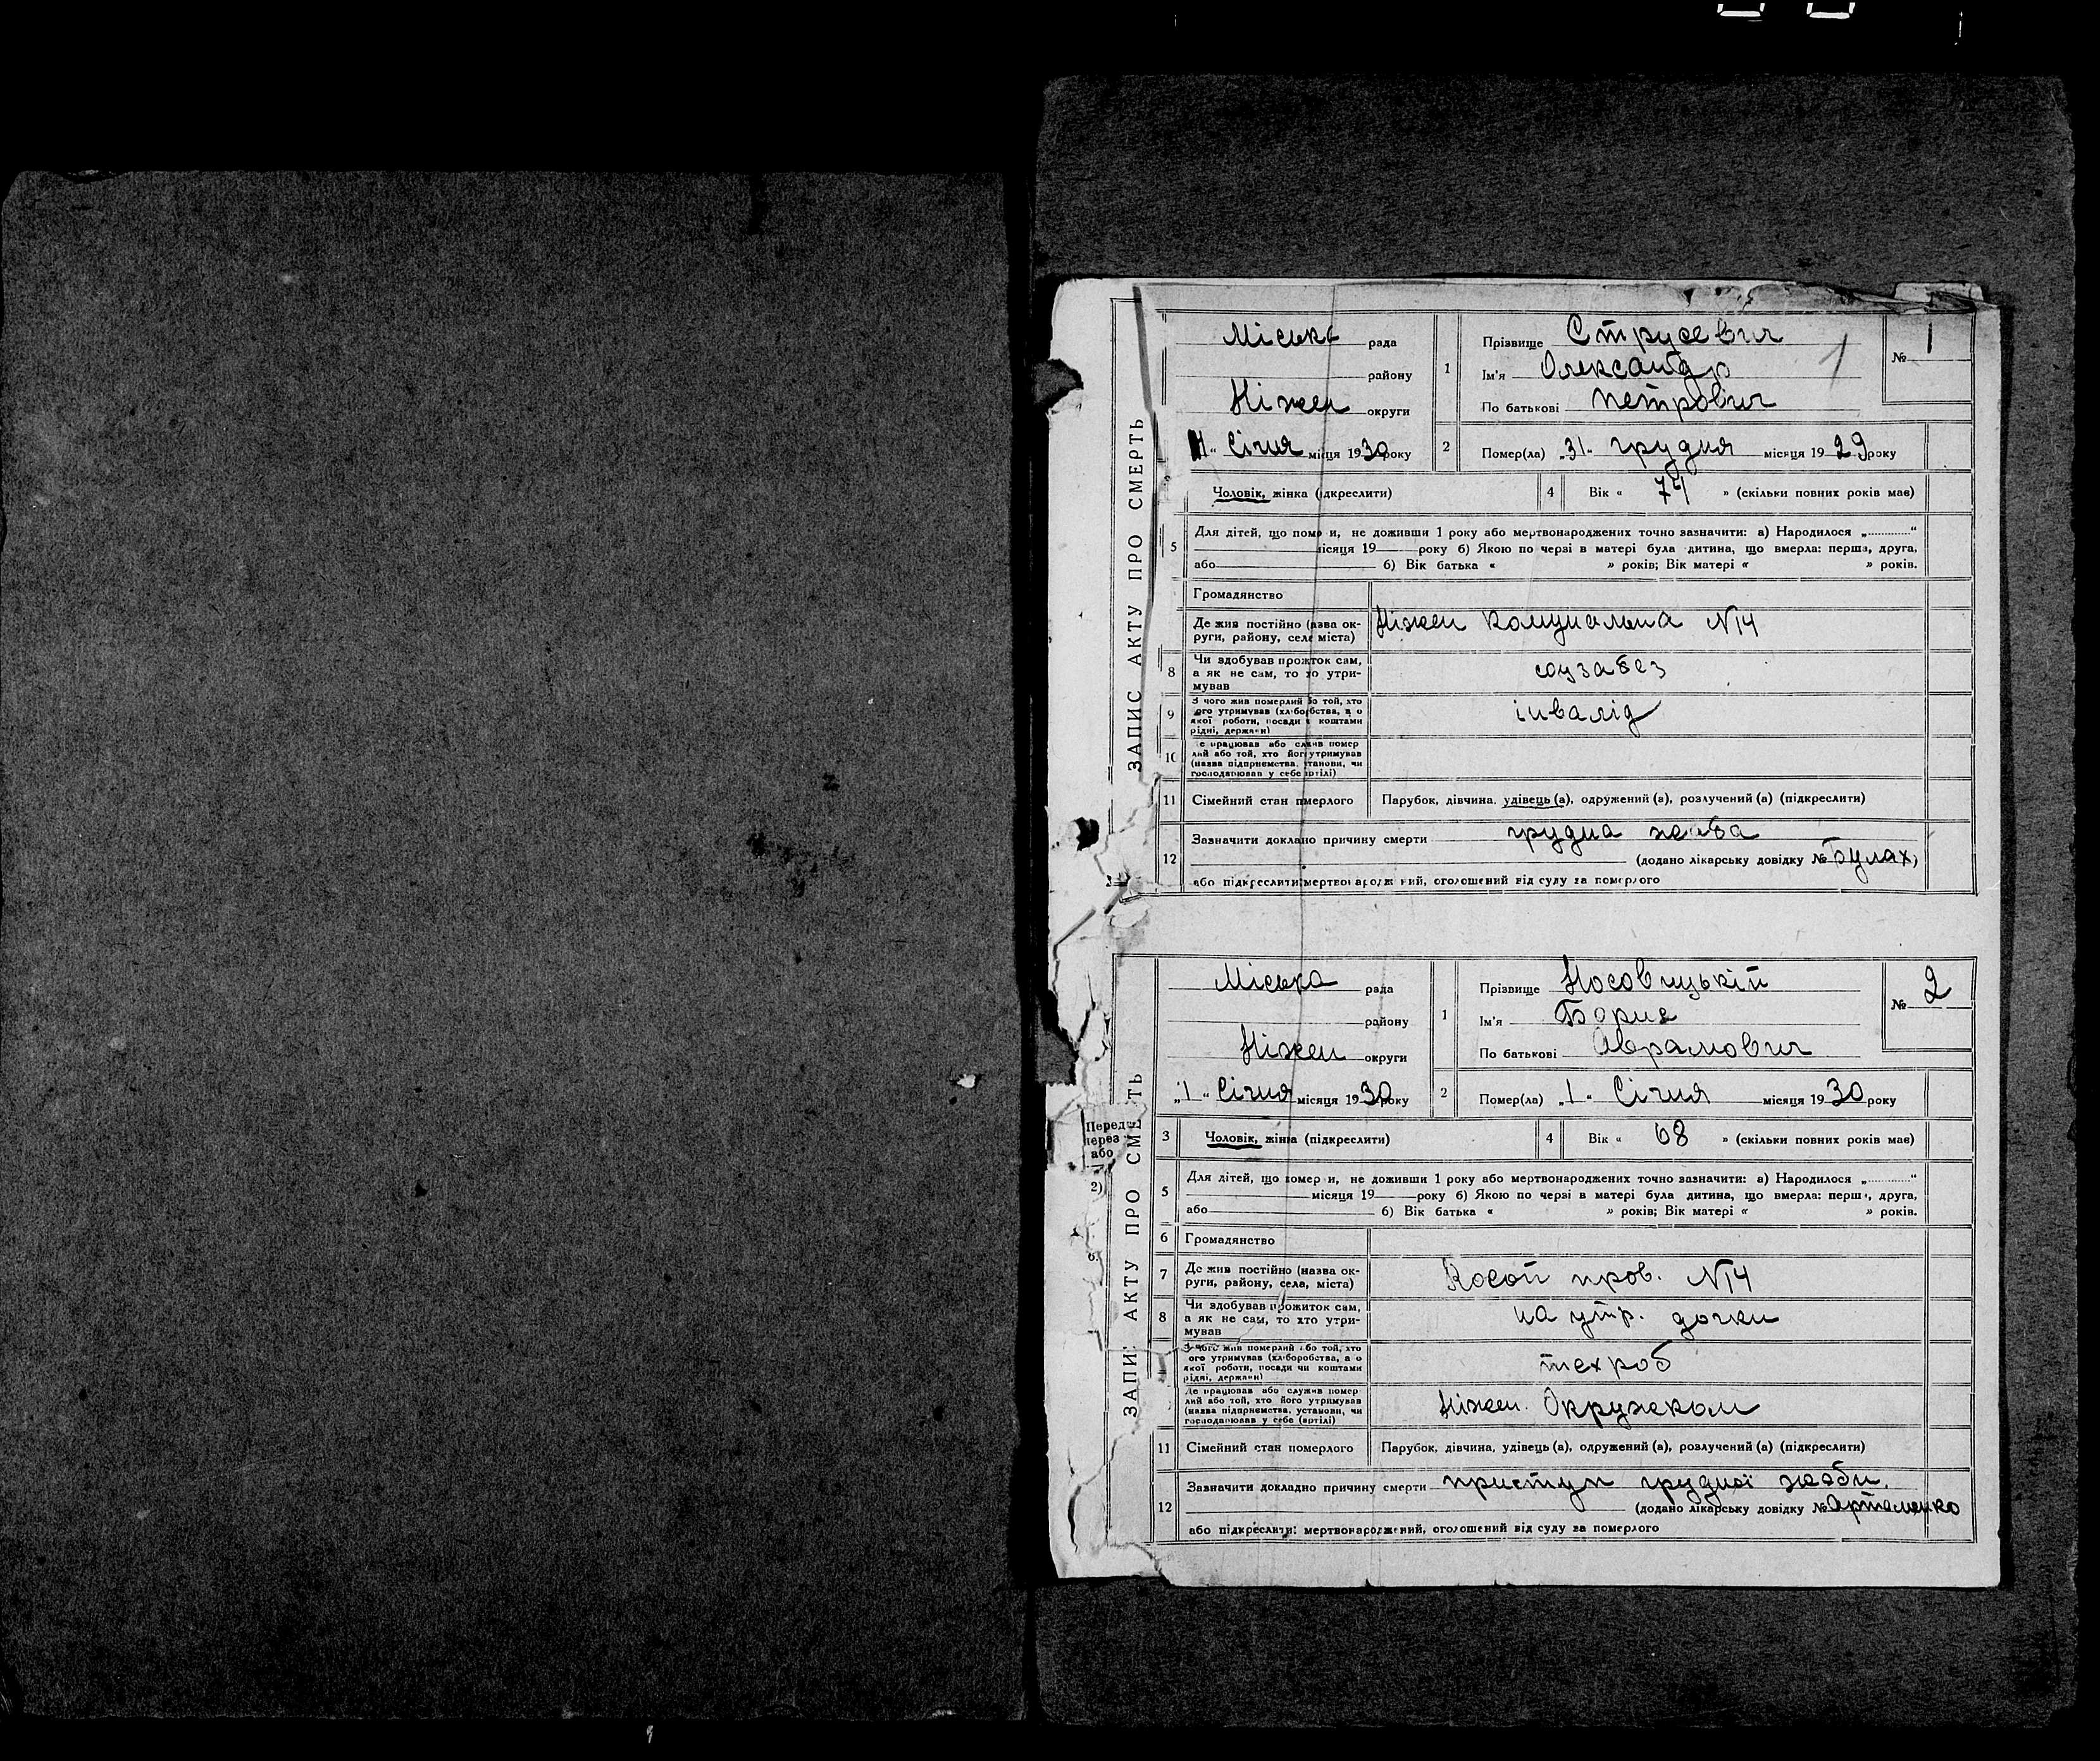 ЗАПИС АКТУ ПРО СМЕРТЬ
Міська рада
району
Ніжен округи
1 " Січня місяця 1930 року
1 Прізвище Струсевич
Ім'я Олександр
По батькові Петрович
№ 1
1
2 Помер(ла) „31" грудня місяця 1929 року
Чоловік, жінка (підкреслити)
4 Вік « 74 » (скільки повних років має)
5 Для дітей, що померли, не доживши 1 року або мертвонароджених точно зазначити: а) Народилося „ "
місяця 19 року б) Якою по черзі в матері була дитина, що вмерла: перша, друга,
або б) Вік батька « » років; Вік матері « » років.
Громадянство
Де жив постійно (назва ок-
руги, району, села міста) Ніжен Комунальна №14
8 Чи здобував прожиток сам,
а як не сам, то хто утри-
мував соузабез
9 З чого жив померлий або той, хто
його утримував (хліборобства, а о
якої роботи, посади чи коштами
рідні, держави) інвалід
10 Де працював або служив помер
лий або той, хто його утримував
(назва підприємства, установи, чи
господарював у себе артілі)
11 Сімейний стан померлого Парубок, дівчина, удівець (а), одружений (а), розлучений (а) (підкреслити)
12 Зазначити докладно причину смерти грудна жаба
(додано лікарську довідку № Булах)
або підкреслити: мертвонароджений, оголошений від суду за померлого
ЗАПИС АКТУ ПРО СМЕРТЬ
Міська рада
району
Ніжен округи
„1 " Січня місяця 1930 року
1 Прізвище Носовицькій
Ім'я Борис
По батькові Аврамович
№ 2
2 Помер(ла) „1" Січня місяця 1930 року
3 Чоловік, жінка (підкреслити)
4 Вік « 68 » (скільки повних років має)
5 Для дітей, що померли, не доживши 1 року або мертвонароджених точно зазначити: а) Народилося „ "
місяця 19 року б) Якою по черзі в матері була дитина, що вмерла: перша, друга,
або б) Вік батька « » років; Вік матері « » років.
6 Громадянство
7 Де жив постійно (назва ок-
руги, району, села, міста) Косой пров. №14
8 Чи здобував прожиток сам,
а як не сам, то хто утри-
мував на утр. дочки
З чого жив померлий або той, хто
його утримував (хліборобства, а о
якої роботи, посади чи коштами
рідні, держави) техроб
Де працював або служив помер
лий або той, хто його утримував
(назва підприємства, установи, чи
господарював у себе (артілі) Ніжен. Окружком
11 Сімейний стан померлого Парубок, дівчина, удівець (а), одружений (а), розлучений (а) (підкреслити)
12 Зазначити докладно причину смерти приступ грудної жаби.
(додано лікарську довідку № Артеменко
або підкреслити: мертвонароджений, оголошений від суду за померлого
або
2)